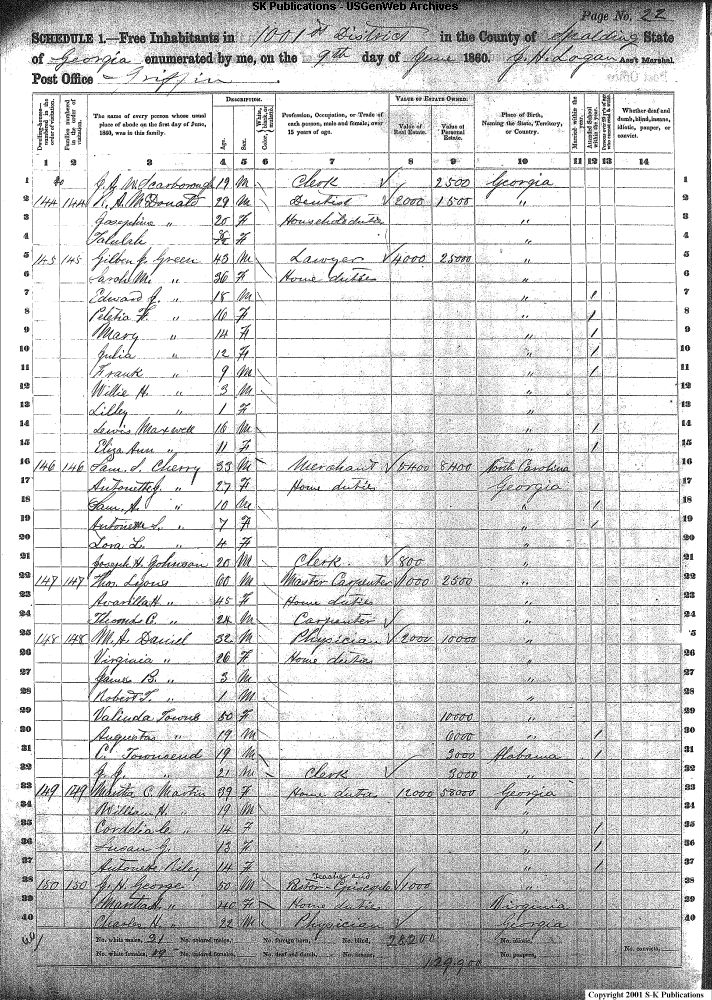 SK Publications - USGenWeb Archives
Page No. 22
SCHEDULE 1.—Free Inhabitants in 1001st District in the County of Spalding State
of Georgia enumerated by me, on the 9th day of June 1860. J. H. Logan Ass't Marshal.
Post Office Griffin
Dwelling-houses—numbered in the order of visitation.
Families numbered in the order of visitation.
The name of every person whose usual place of abode on the first day of June, 1860, was in this family.
DESCRIPTION.
Age.
Sex.
Color, White, black, or mulatto.
Profession, Occupation, or Trade of each person, male and female, over 15 years of age.
VALUE OF ESTATE OWNED.
Value of Real Estate.
Value of Personal Estate.
Place of Birth, Naming the State, Territory, or Country.
Married within the year.
Attended School within the year.
Whether deaf and dumb, blind, insane, idiotic, pauper, or convict.
1 2 3 4 5 6 7 8 9 10 11 12 13 14
1 Scarborough 19 M Clerk 2500 Georgia 1
2 144 144 A McDonald 29 M Dentist 2000 1500 " 2
3 Josephine " 20 F Household duties " 3
4 Talulah F " 4
5 145 145 Gilbert J. Green 43 M Lawyer 4000 25000 " 5
6 Sarah M. " 36 F Home duties " 6
7 Edward J. " 18 M " / 7
8 " 16 F " / 8
9 Mary " 14 F " / 9
10 Julia " 12 F " / 10
11 Frank " 9 M " / 11
12 Willie H. " 3 M " 12
13 Lilley " 1 F " 13
14 Lewis Maxwell 16 M " / 14
15 Eliza Ann " 11 F " / 15
16 146 146 Sam. Cherry 33 M Merchant 5400 8400 North Carolina 16
17 " 27 F Home duties Georgia 17
18 Sam. A. " 10 M " / 18
19 " 7 F " / 19
20 Lora L. " 4 F " 20
21 Joseph H. Johnson 20 M Clerk 800 " 21
22 147 147 Thos. Lyons 60 M Master Carpenter 1000 2500 " 22
23 Avarilla H. " 45 F Home duties " 23
24 Thomas " 24 M Carpenter " 24
25 148 148 A. Daniel 32 M Physician 2000 10000 " 5
26 Virginia " 26 F Home duties " 26
27 James B. " 3 M " 27
28 Robert T. " 1 M " 28
29 Valinda Towns 50 F 10000 " 29
30 Augustus " 19 M 6000 " / 30
31 C. Townsend 19 M 3000 Alabama / 31
32 " 21 M Clerk 3000 " 32
33 149 149 Martha C. Martin 39 F Home duties 12000 58000 Georgia 33
34 William H. " 19 M " 34
35 Cordelia C. " 14 F " / 35
36 Susan G. " 13 F " / 36
37 Riley 14 F " / 37
38 150 150 J. H. George 50 M Teacher and Pastor - Episcopal 1000 " 38
39 " 40 F Home duties Virginia 39
40 Charles H. " 22 M Physician Georgia 40
No. white males, 21 No. colored males, No. foreign born, No. blind, 28200 No. idiotic,
No. white females, 19 No. colored females, No. deaf and dumb, No. insane, No. paupers, No. convicts,
Copyright 2001 S-K Publications